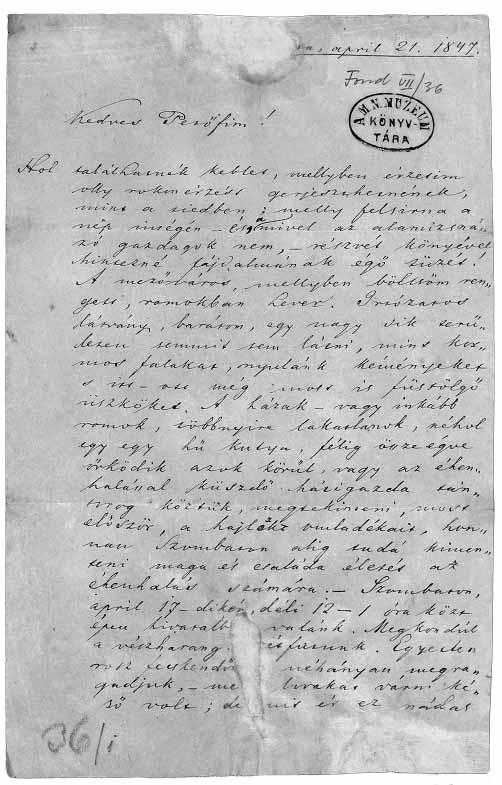 april 21. 1847.
Fond VII/36
A.M.N. MUZEUM
KÖNYV-
TÁRA
Kedves Petőfim!
Hol találhatnék keblet, mellyben érzésim
olly rokonérzést gerjeszthetnének,
mint a tiedben; melly felsírna a
nép inségén – és, mivel az alamizsná-
zó gazdagok nem, – részvét könyével
hintezné fájdalmának égő tüzét!
A mezőváros, mellyben bölcsőm ren-
gett, romokban hever. Irtózatos
látvány, barátom, egy nagy sik terü-
leten semmit sem látni, mint kor-
mos falakat, nyulánk kéményeket
s itt-ott még most is füstölgő
üszköket. A házak – vagy inkább
romok, többnyire lakatlanok, néhol
egy egy hű kutya, félig összeégve
őrködik azok körül, vagy az éhen-
halással küszdő házigazda tán-
torog köztük, megtekinteni, most
először, a hajlék omladékait, hon-
nan Szombaton alig tudá kimen-
teni maga és családa életét az
éhenhalás számára. – Szombaton,
april 17-dikén, déli 12-1 óra közt
épen hivatalb valánk. Megkondúl
a vészharang. futunk. Egyetlen
rosz fecskendő néhányan megra-
gadjuk, – várni ké-
ső volt; és ez nádas
36/i